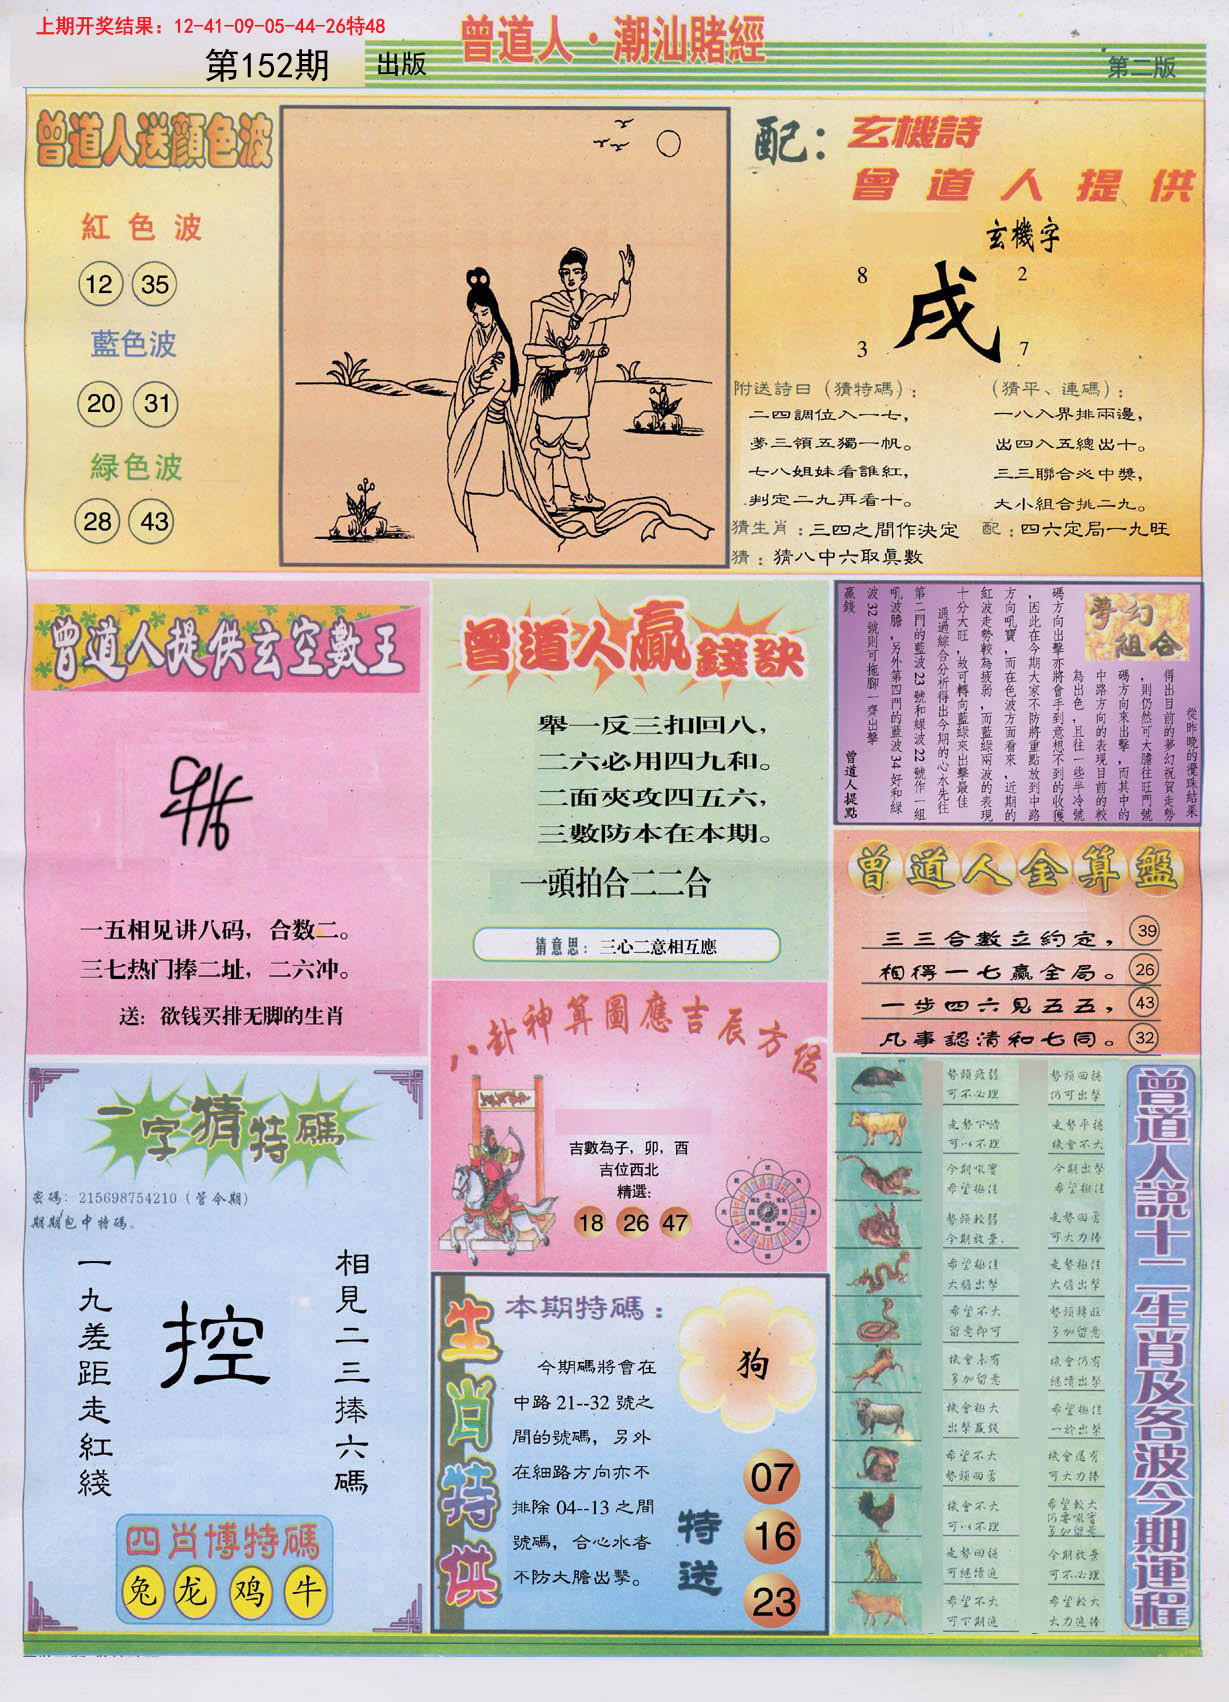 上期开奖结果：12-41-09-05-44-26特48
第152期
出版
曾道人·潮汕賭經
第二版
曾道人送顔色波
紅色波
12 35
藍色波
20 31
緑色波
28 43
配：玄機詩
曾道人提供
玄機字
8 2
戌
3 7
附送詩曰（猜特碼）：
二四調位入一七，
夢三領五獨一帆。
七八姐妹看誰紅，
判定二九再看十。
（猜平、連碼）：
一八入界排兩邊，
出四入五總出十。
三三聯合必中獎，
大小組合挑二九。
猜生肖：三四之間作決定
配：四六定局一九旺
猜：猜八中六取眞數
曾道人提供玄空數王
一五相见讲八码，合数二。
三七热门捧二址，二六冲。
送：欲钱买排无脚的生肖
曾道人贏錢訣
舉一反三扣回八，
二六必用四九和。
二面夾攻四五六，
三數防本在本期。
一頭拍合二二合
猜意思：三心二意相互應
夢幻組合
從昨晚的攪珠結果
得出目前的夢幻祝賀走勢
，則仍然可大膽往旺門號
碼方向來出擊，而其中的
中路方向的表現目前的較
為出色，且往一些半冷號
碼方向出擊亦將會手到意想不到的收獲
，因此在今期大家不防將重點放到中路
方向吼寶，而在色波方面看來，近期的
紅波走勢較為疲弱，而藍綠兩波的表現
十分大旺，故可轉向藍綠來出擊最佳
通過綜合分析得出今期的心水先往
第二門的藍波23號和綠波22號作一組
吼波膽，另外第四門的藍波34好和綠
波32號則可拖腳一齊出擊
贏錢
曾道人提點
曾道人金算盤
三三合數立約定， 39
相得一七贏全局。 26
一步四六見五五， 43
凡事認清和七同。 32
八卦神算圖應吉辰方位
吉數為子，卯，酉
吉位西北
精選：
18 26 47
一字猜特碼
密碼：215698754210（管今期）
期期包中特碼。
相見二三捧六碼
控
一九差距走紅綫
四肖博特碼
兔 龙 鸡 牛
生肖特供
本期特碼：
今期碼將會在
中路21--32號之
間的號碼，另外
在細路方向亦不
排除04--13之間
號碼，合心水者
不防大膽出擊。
狗
特送
07
16
23
曾道人説十二生肖及各波今期運程
勢頭疲弱 勢頭回穩
可不必理 仍可出擊
走勢下滑 走勢平穩
可以不理 機會不大
今期吼寶 今期出擊
希望極佳 希望極佳
勢頭較弱 走勢回勇
今期放棄 可大力捧
希望極佳 走勢極佳
大膽出擊 大膽出擊
希望不大 勢頭轉旺
留意即可 多加留意
機會未有 機會仍有
多加留意 繼續出擊
機會極大 希望極佳
出擊贏錢 一於出擊
希望不大 機會還有
勢頭回勇 可大力捧
機會不大 希望較大
可以不理 仍要吼實
多加留意
走勢回穩 今期放棄
可繼續追 可不必理
希望不大 希望較大
可下期追 大力追捧